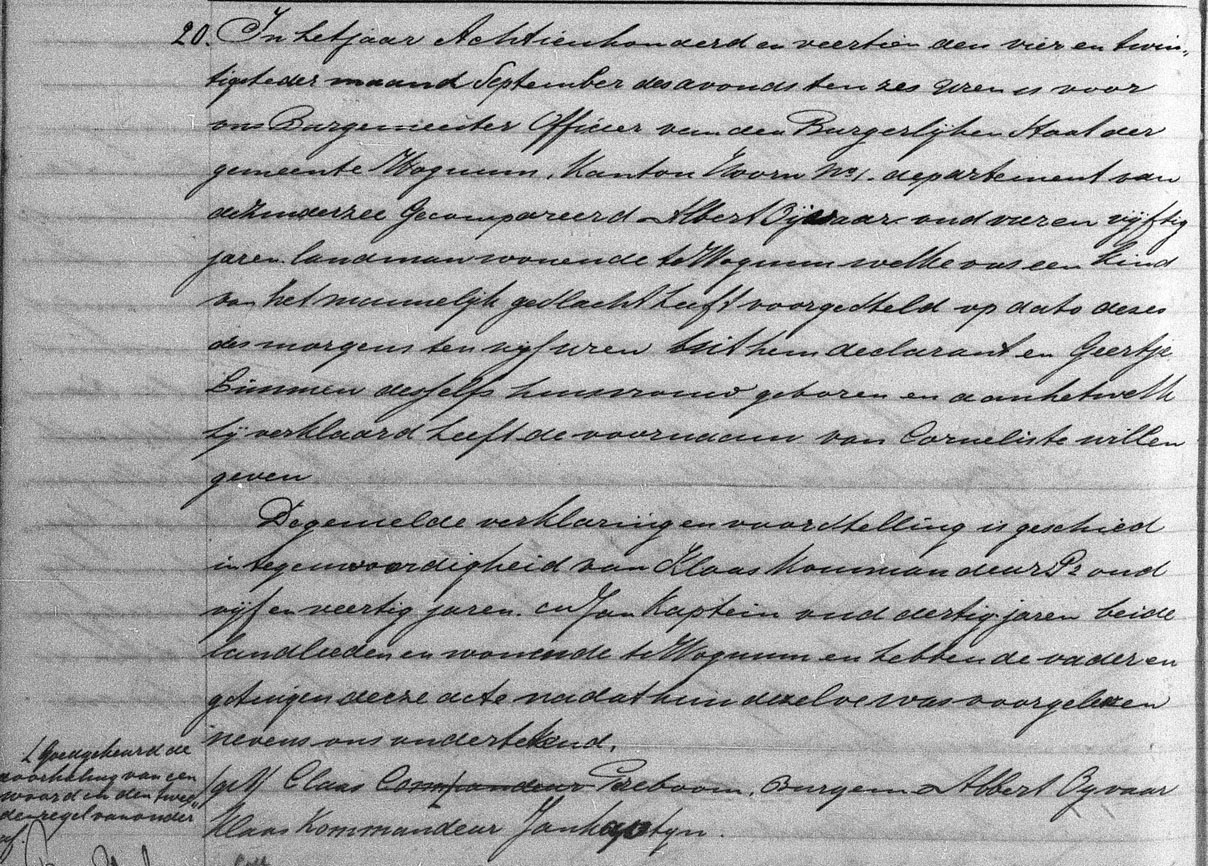 20. In het jaar Achtienhonderd en veertien den vier en twin„
tigste der maand September des avonds ten zes uren is voor
ons Burgemeester Officier van den Burgerlijken Staat der
gemeente Wognum, Kanton Hoorn No 1. departement van
de Zuiderzee Gecompareerd Albert Oijevaar oud vier en vijftig
jaren landman wonende te Wognum welke ons een kind
van het mannelijk geslacht heeft voorgesteld op dato dezes
des morgens ten vijf uren uit hem declarant en Geertje
Simmen deszelfs huisvrouw geboren en aan hetwelk
hij verklaard heeft de voornaam van Cornelis te willen
geven
De gemelde verklaring en voordstelling is geschied
in tegenwoordigheid van Klaas Kommandeur Pz oud
vijf en veertig jaren en Jan Kaptein oud dertig jaren beide
landlieden en wonende te Wognum en hebben de vader en
getuigen deeze acte na dat hun dezelve was voorgelezen
nevens ons ondertekend.
/get/ Claas Commandeur Greboom, Burgem Albert Oyvaar
Klaas Kommandeur Jan Kaptyn.
Goedgekeurd de
doorhaling van een
woord in den twee„
den regel van onder
af.